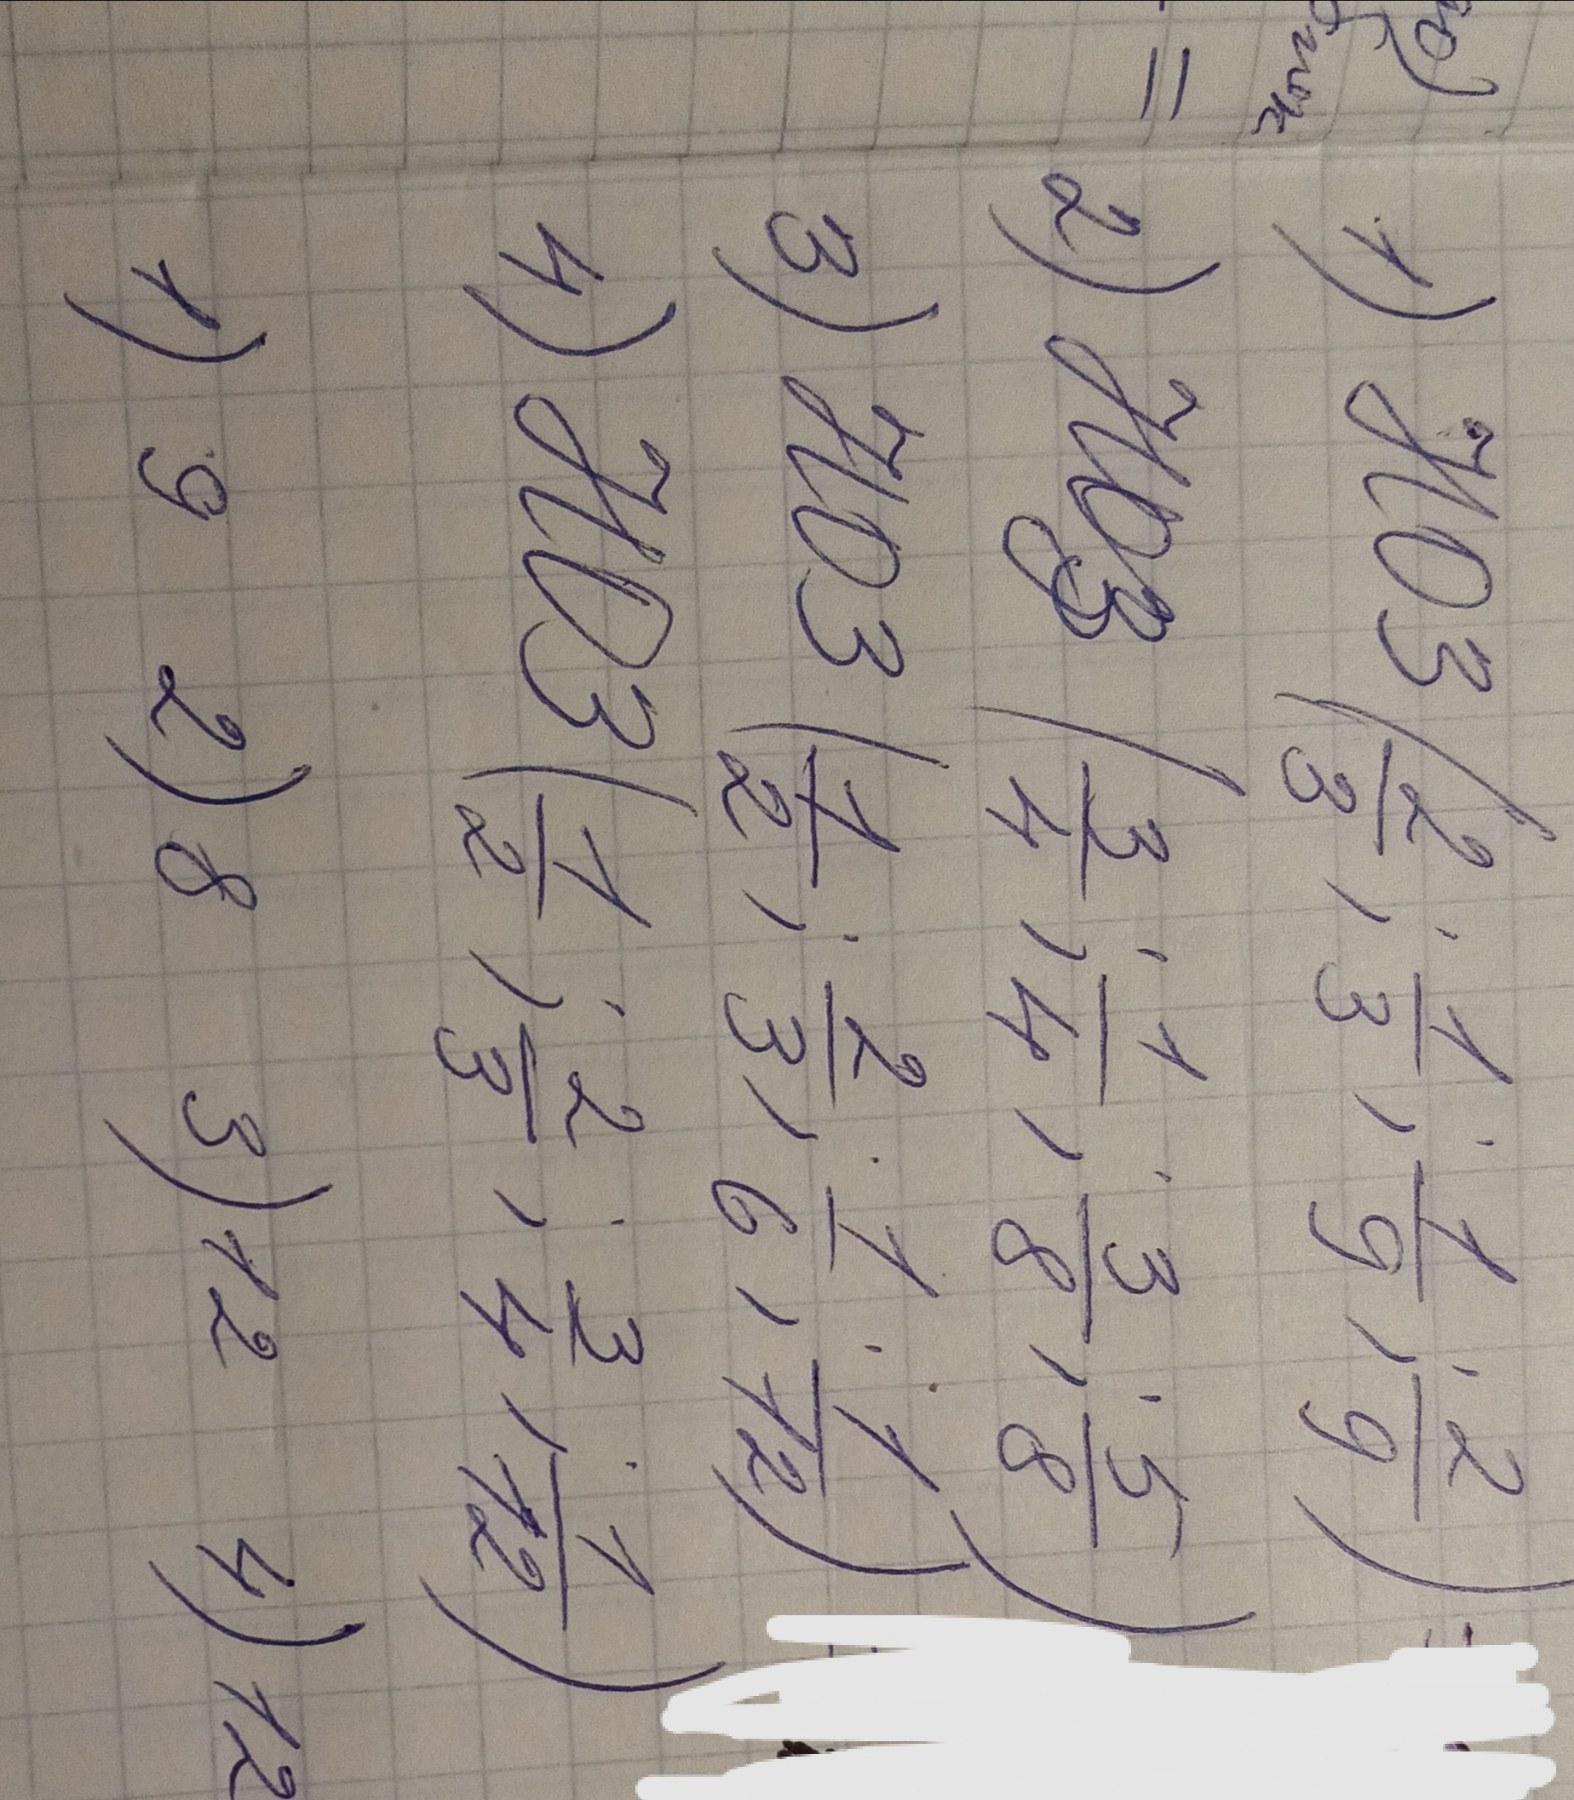 1) НОЗ (2/3; 1/3; 1/9; 2/9) =
2) НОЗ (3/4; 1/4; 3/8; 5/8)
3) НОЗ (1/2; 2/3; 1/6; 1/12)
4) НОЗ (1/2; 2/3; 3/4; 1/12)
1) 9 2) 8 3) 12 4) 12